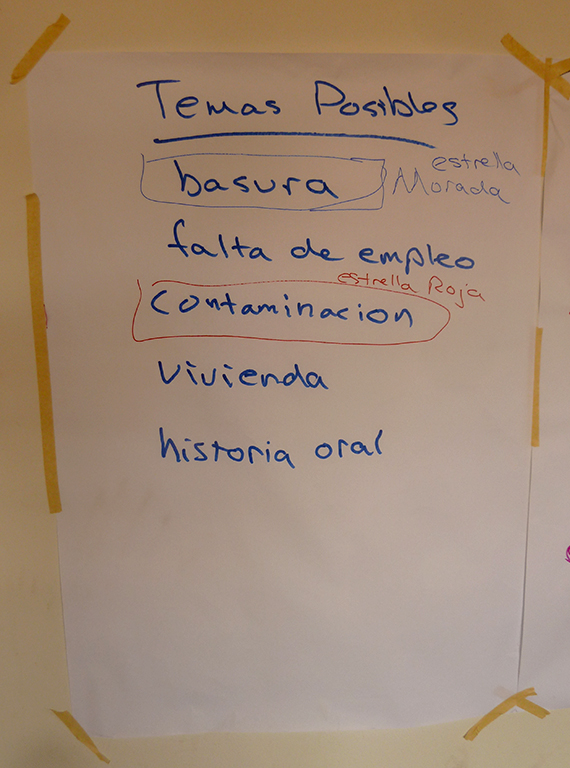 Temas Posibles
estrella
basura Morada
falta de empleo
estrella Roja
contaminacion
vivienda
historia oral